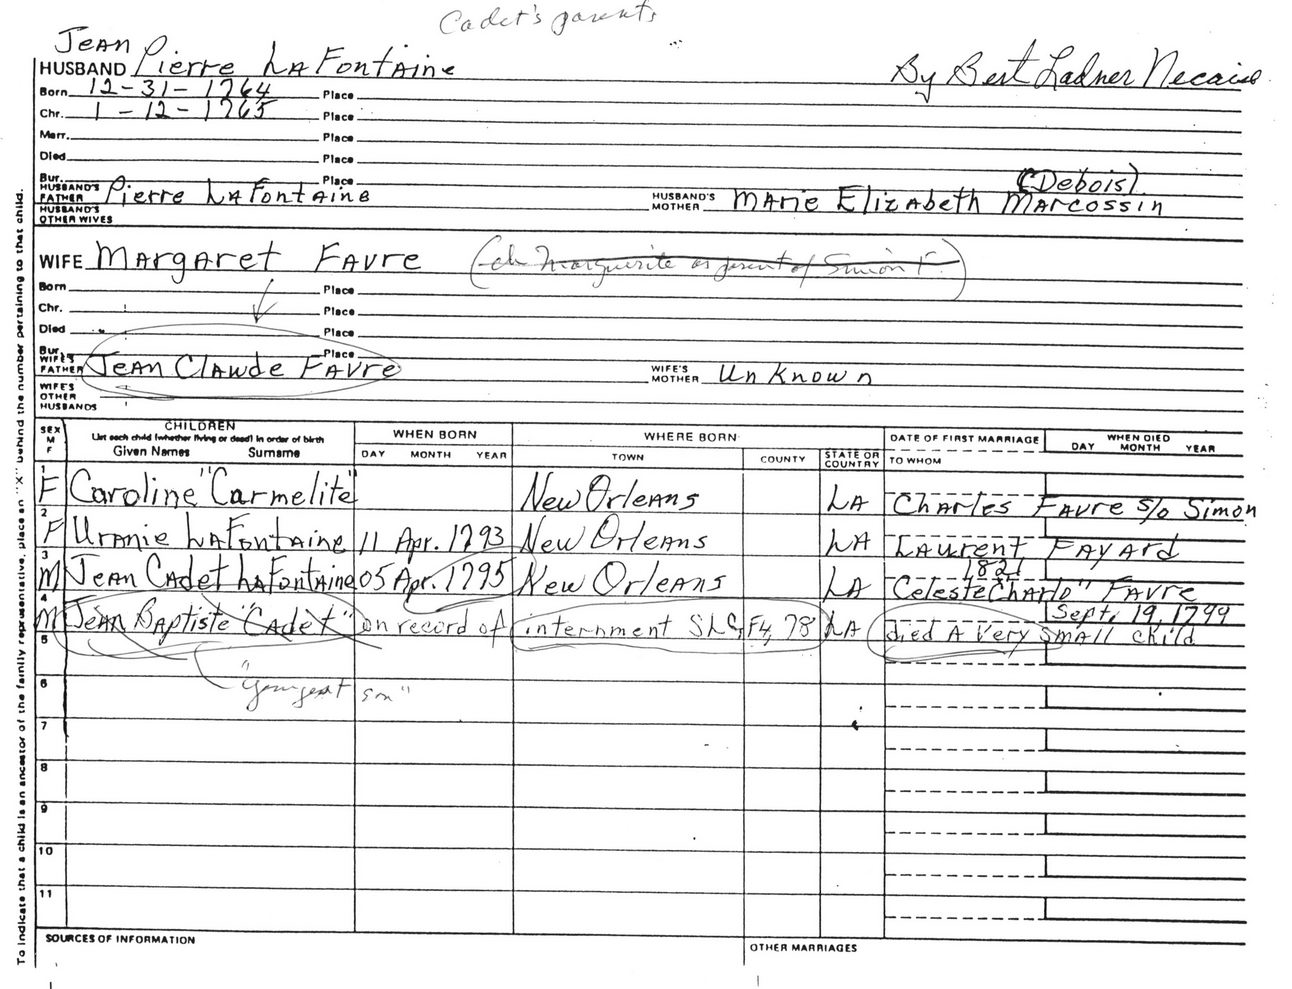 Cadet's parents
Jean
HUSBAND Pierre LaFontaine
By Bert Ladner Necaise
Born 12-31-1764 Place
Chr. 1-12-1765 Place
Marr. Place
Died Place
Bur. Place
(Debois)
HUSBAND'S FATHER Pierre LaFontaine HUSBAND'S MOTHER Marie Elizabeth Marcossin
HUSBAND'S OTHER WIVES
WIFE Margaret Favre (ch Marguerite as parent of Simon F.)
Born Place
Chr. Place
Died Place
Bur. Place
WIFE'S FATHER Jean Claude Favre WIFE'S MOTHER Unknown
WIFE'S OTHER HUSBANDS
SEX M F CHILDREN WHEN BORN WHERE BORN DATE OF FIRST MARRIAGE WHEN DIED
List each child (whether living or dead) in order of birth
Given Names Surname DAY MONTH YEAR TOWN COUNTY STATE OR COUNTRY TO WHOM DAY MONTH YEAR
1 F Caroline "Carmelite" New Orleans LA Charles Favre s/o Simon
2 F Uranie LaFontaine 11 Apr. 1793 New Orleans LA Laurent Fayard
1821
3 M Jean Cadet LaFontaine 05 Apr. 1795 New Orleans LA Celeste "Charlo" Favre
Sept. 19, 1799
4 M Jean Baptiste "Cadet" on record of internment SLC, F4, 78 LA died A very small child
5
"youngest son"
6
7
8
9
10
11
SOURCES OF INFORMATION OTHER MARRIAGES
To indicate that a child is an ancestor of the family representative, place an "X" behind the number pertaining to that child.